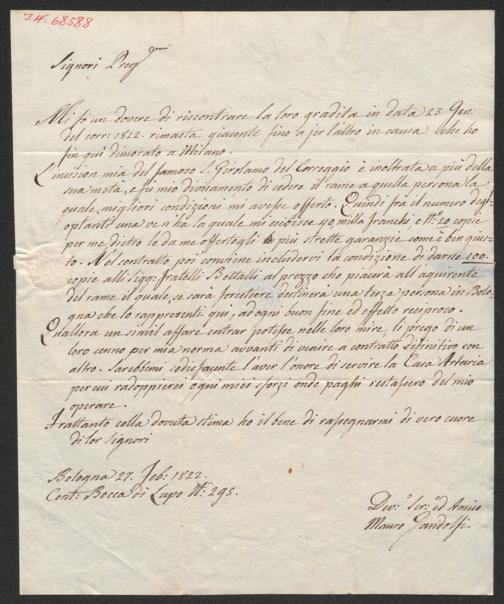 J.N. 68588
Signori Preg.mi
Mi fò un dovere di riscontrare la loro gradita in data 23 Gen:
del corr: 1822. rimasta giacente fino a jer l'altro in causa che ho
fin qui dimorato a Milano.
L'incision mia del famoso S. Girolamo del Correggio è inoltrata a più della
sua metà, e fu mio divisamento di cedere il rame a quella persona la
quale, migliori condizioni mi avesse offerto. Quindi frà il numero degl'
optanti una ve n'ha la quale mi esibisce 40 milla franchi e N.o 20 copie
per me, dietro le da me offertogli più strette garanzie come è ben gius-
to. Nel contratto poi conviene includervi la condizione di darne 100.
copie alli Sigg: fratelli Bettalli al prezzo che piacerà all'aquirente
del rame il quale, se sarà forestiere destinerà una terza persona in Bolo-
gna che lo rappresenti qui, ad ogni buon fine ed effetto reciproco.
Qualora un simil affare entrar potesse nelle loro mire, li prego di un
loro cenno per mia norma avvanti di venire a contratto diffinitivo con
altro. Sarebbemi sodisfacente l'aver l'onore di servire la Casa Artaria
per cui radoppierei ogni miei sforzi onde paghi restassero del mio
operare.
Frattanto colla dovuta stima ho il bene di rassegnarmi di vero cuore
di lor signori
Bologna 27. Feb: 1822.
Cont: Bocca di Lupo N.o 295.
Dev:o Ser:e ed Amico
Mauro Gandolfi